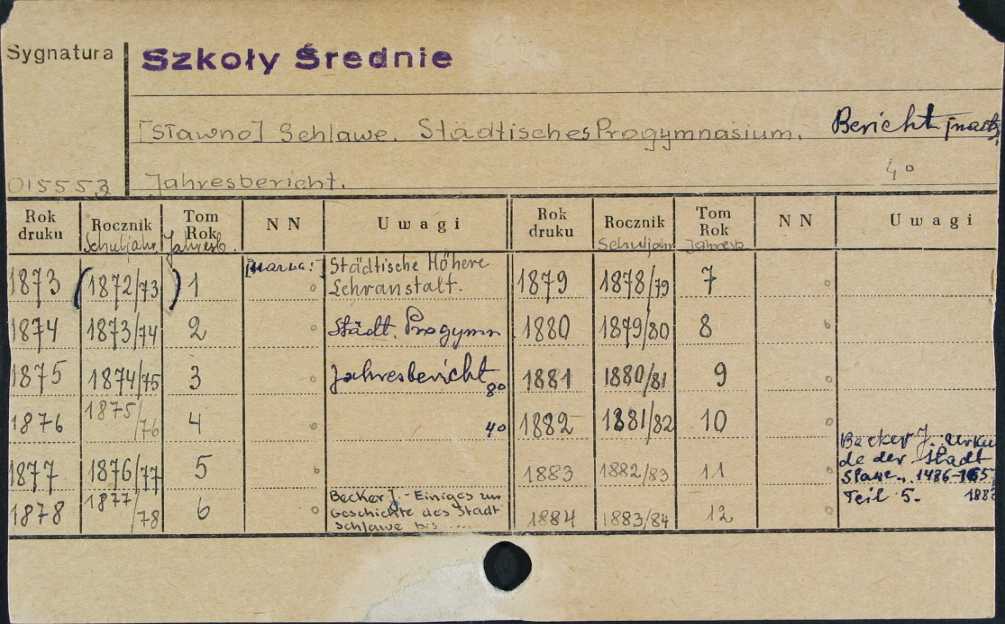 Sygnatura
Szkoły Średnie
[Sławno] Schlawe. Städtisches Progymnasium. Bericht
4°
015553 Jahresbericht.
Rok druku Rocznik Schuljahr Tom Rok Jahresb. NN Uwagi Rok druku Rocznik Schuljahr Tom Rok Jahresb. NN Uwagi
1873 (1872/73) 1 Städtische Höhere Lehranstalt. 1879 1878/79 7
1874 1873/74 2 Städt. Progymn 1880 1879/80 8
1875 1874/75 3 Jahresbericht 8° 1881 1880/81 9
1876 1875/76 4 4° 1882 1881/82 10
1877 1876/77 5 1883 1882/83 11 Becker J. Urkunde der Stadt 1486-
1878 1877/78 6 Becker J. - Einiges zur Geschichte des Stadt Schlawe bis ..... 1884 1883/84 12 Teil 5.